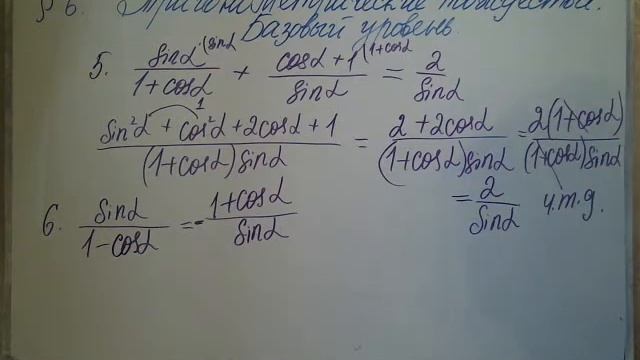 § 6. Тригонометрические тождества.
Базовый уровень.
5. sinα·(sinα / 1+cosα + cosα+1(1+cosα / sinα = 2 / sinα
sin²α + cos²α + 2cosα + 1 / (1+cosα)sinα = 2+2cosα / (1+cosα)sinα = 2(1+cosα) / (1+cosα)sinα
1
= 2 / sinα ч.т.д.
6. sinα / 1-cosα = 1+cosα / sinα